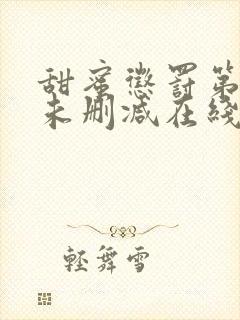 甜蜜懲罰第
未刪減在綫
輕舞雪